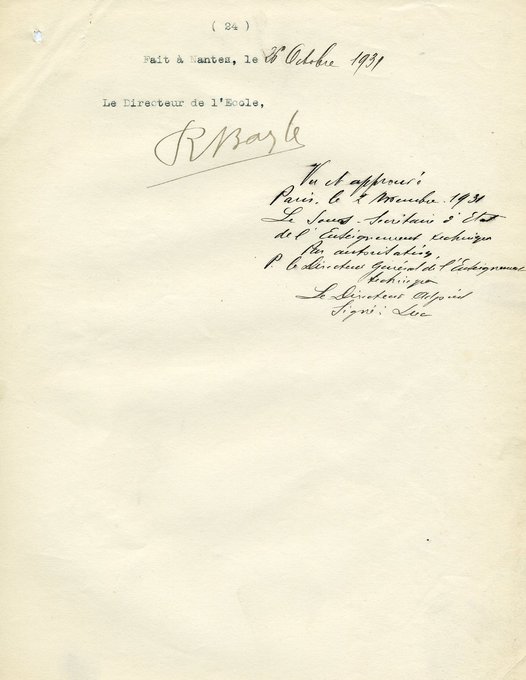 ( 24 )
Fait à Nantes, le 26 Octobre 1931
Le Directeur de l'Ecole,
R Bayle
Vu et approuvé
Paris, le 2 Novembre 1931
Le Sous-Secrétaire d'Etat
de l'Enseignement technique
Par autorisation,
P. le Directeur Général de l'Enseignement
technique
Le Directeur Adjoint
Signé : Luc